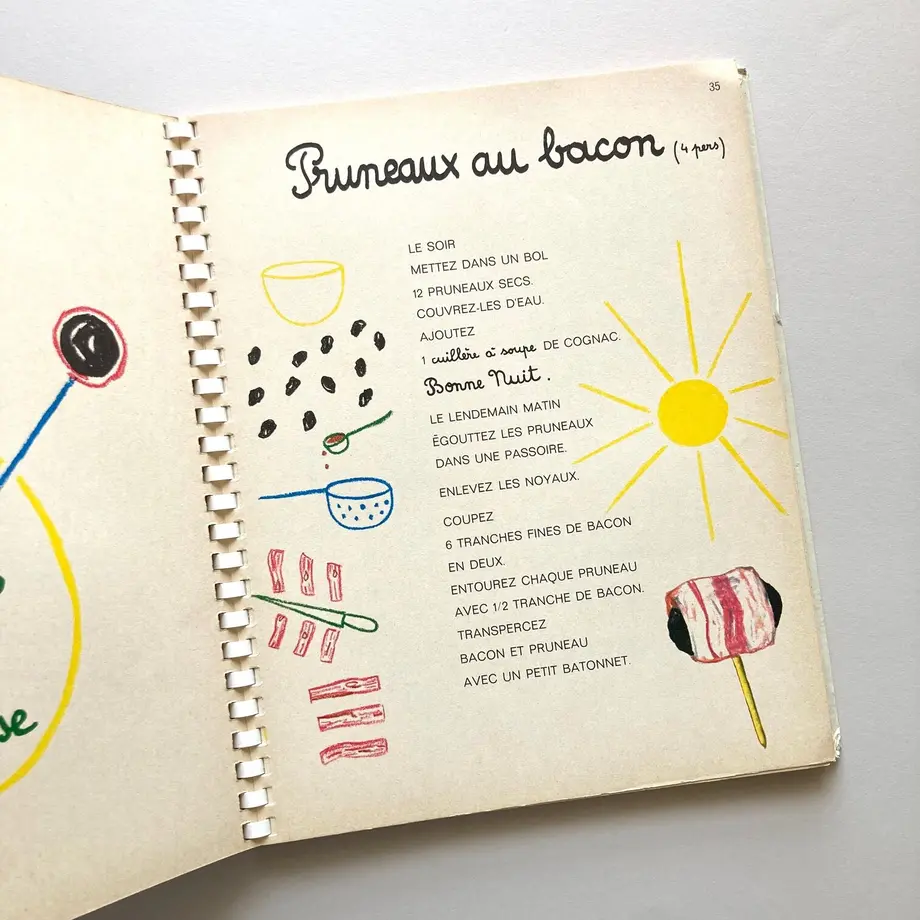 35
Pruneaux au bacon (4 pers)
LE SOIR
METTEZ DANS UN BOL
12 PRUNEAUX SECS.
COUVREZ-LES D'EAU.
AJOUTEZ
1 cuillère à soupe DE COGNAC.
Bonne Nuit.
LE LENDEMAIN MATIN
ÉGOUTTEZ LES PRUNEAUX
DANS UNE PASSOIRE.
ENLEVEZ LES NOYAUX.
COUPEZ
6 TRANCHES FINES DE BACON
EN DEUX.
ENTOUREZ CHAQUE PRUNEAU
AVEC 1/2 TRANCHE DE BACON.
TRANSPERCEZ
BACON ET PRUNEAU
AVEC UN PETIT BATONNET.